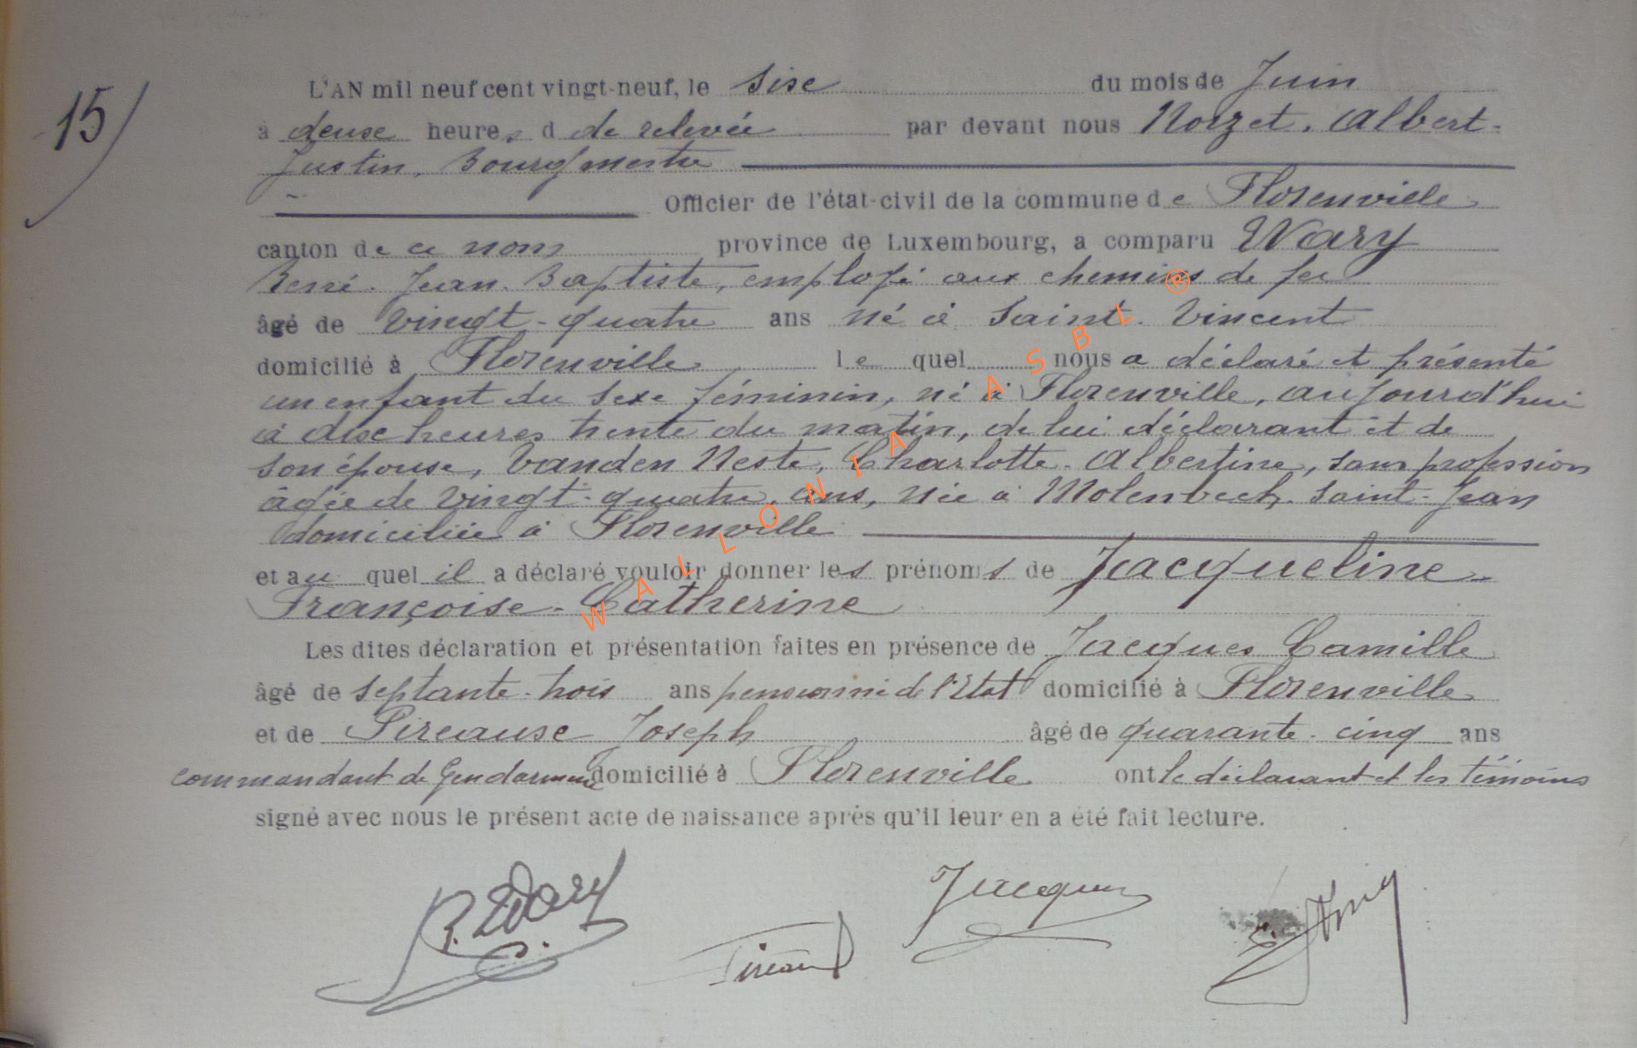 15)
L'AN mil neuf cent vingt-neuf, le sixe du mois de Juin
à deuxe heures d de relevée par devant nous Norzet. Albert-
Justin. Bourgmestre
Officier de l'état-civil de la commune de Florenville
canton de ce nom province de Luxembourg, a comparu Wary
René. Jean. Baptiste, employé aux chemins de fer
âgé de vingt-quatre ans né à Saint. Vincent
domicilié à Florenville lequel nous a déclaré et présenté
un enfant du sexe féminin, né à Florenville, aujourd'hui
à dixe heures trente du matin, de lui déclarant et de
son épouse, Vanden Neste, Charlotte. Albertine, sans profession
âgée de vingt-quatre. ans, née à Molenbeek. Saint-Jean
domiciliée à Florenville
et au quel il a déclaré vouloir donner les prénoms de Jacqueline-
Françoise-Catherine
Les dites déclaration et présentation faites en présence de Jacques Camille
âgé de septante-trois ans pensionné de l'Etat domicilié à Florenville
et de Joseph âgé de quarante-cinq ans
commandant de Gendarmerie domicilié à Florenville ont le déclarant et les témoins
signé avec nous le présent acte de naissance après qu'il leur en a été fait lecture.
R. Wary
Jacques
WALLONIA ASBL ®